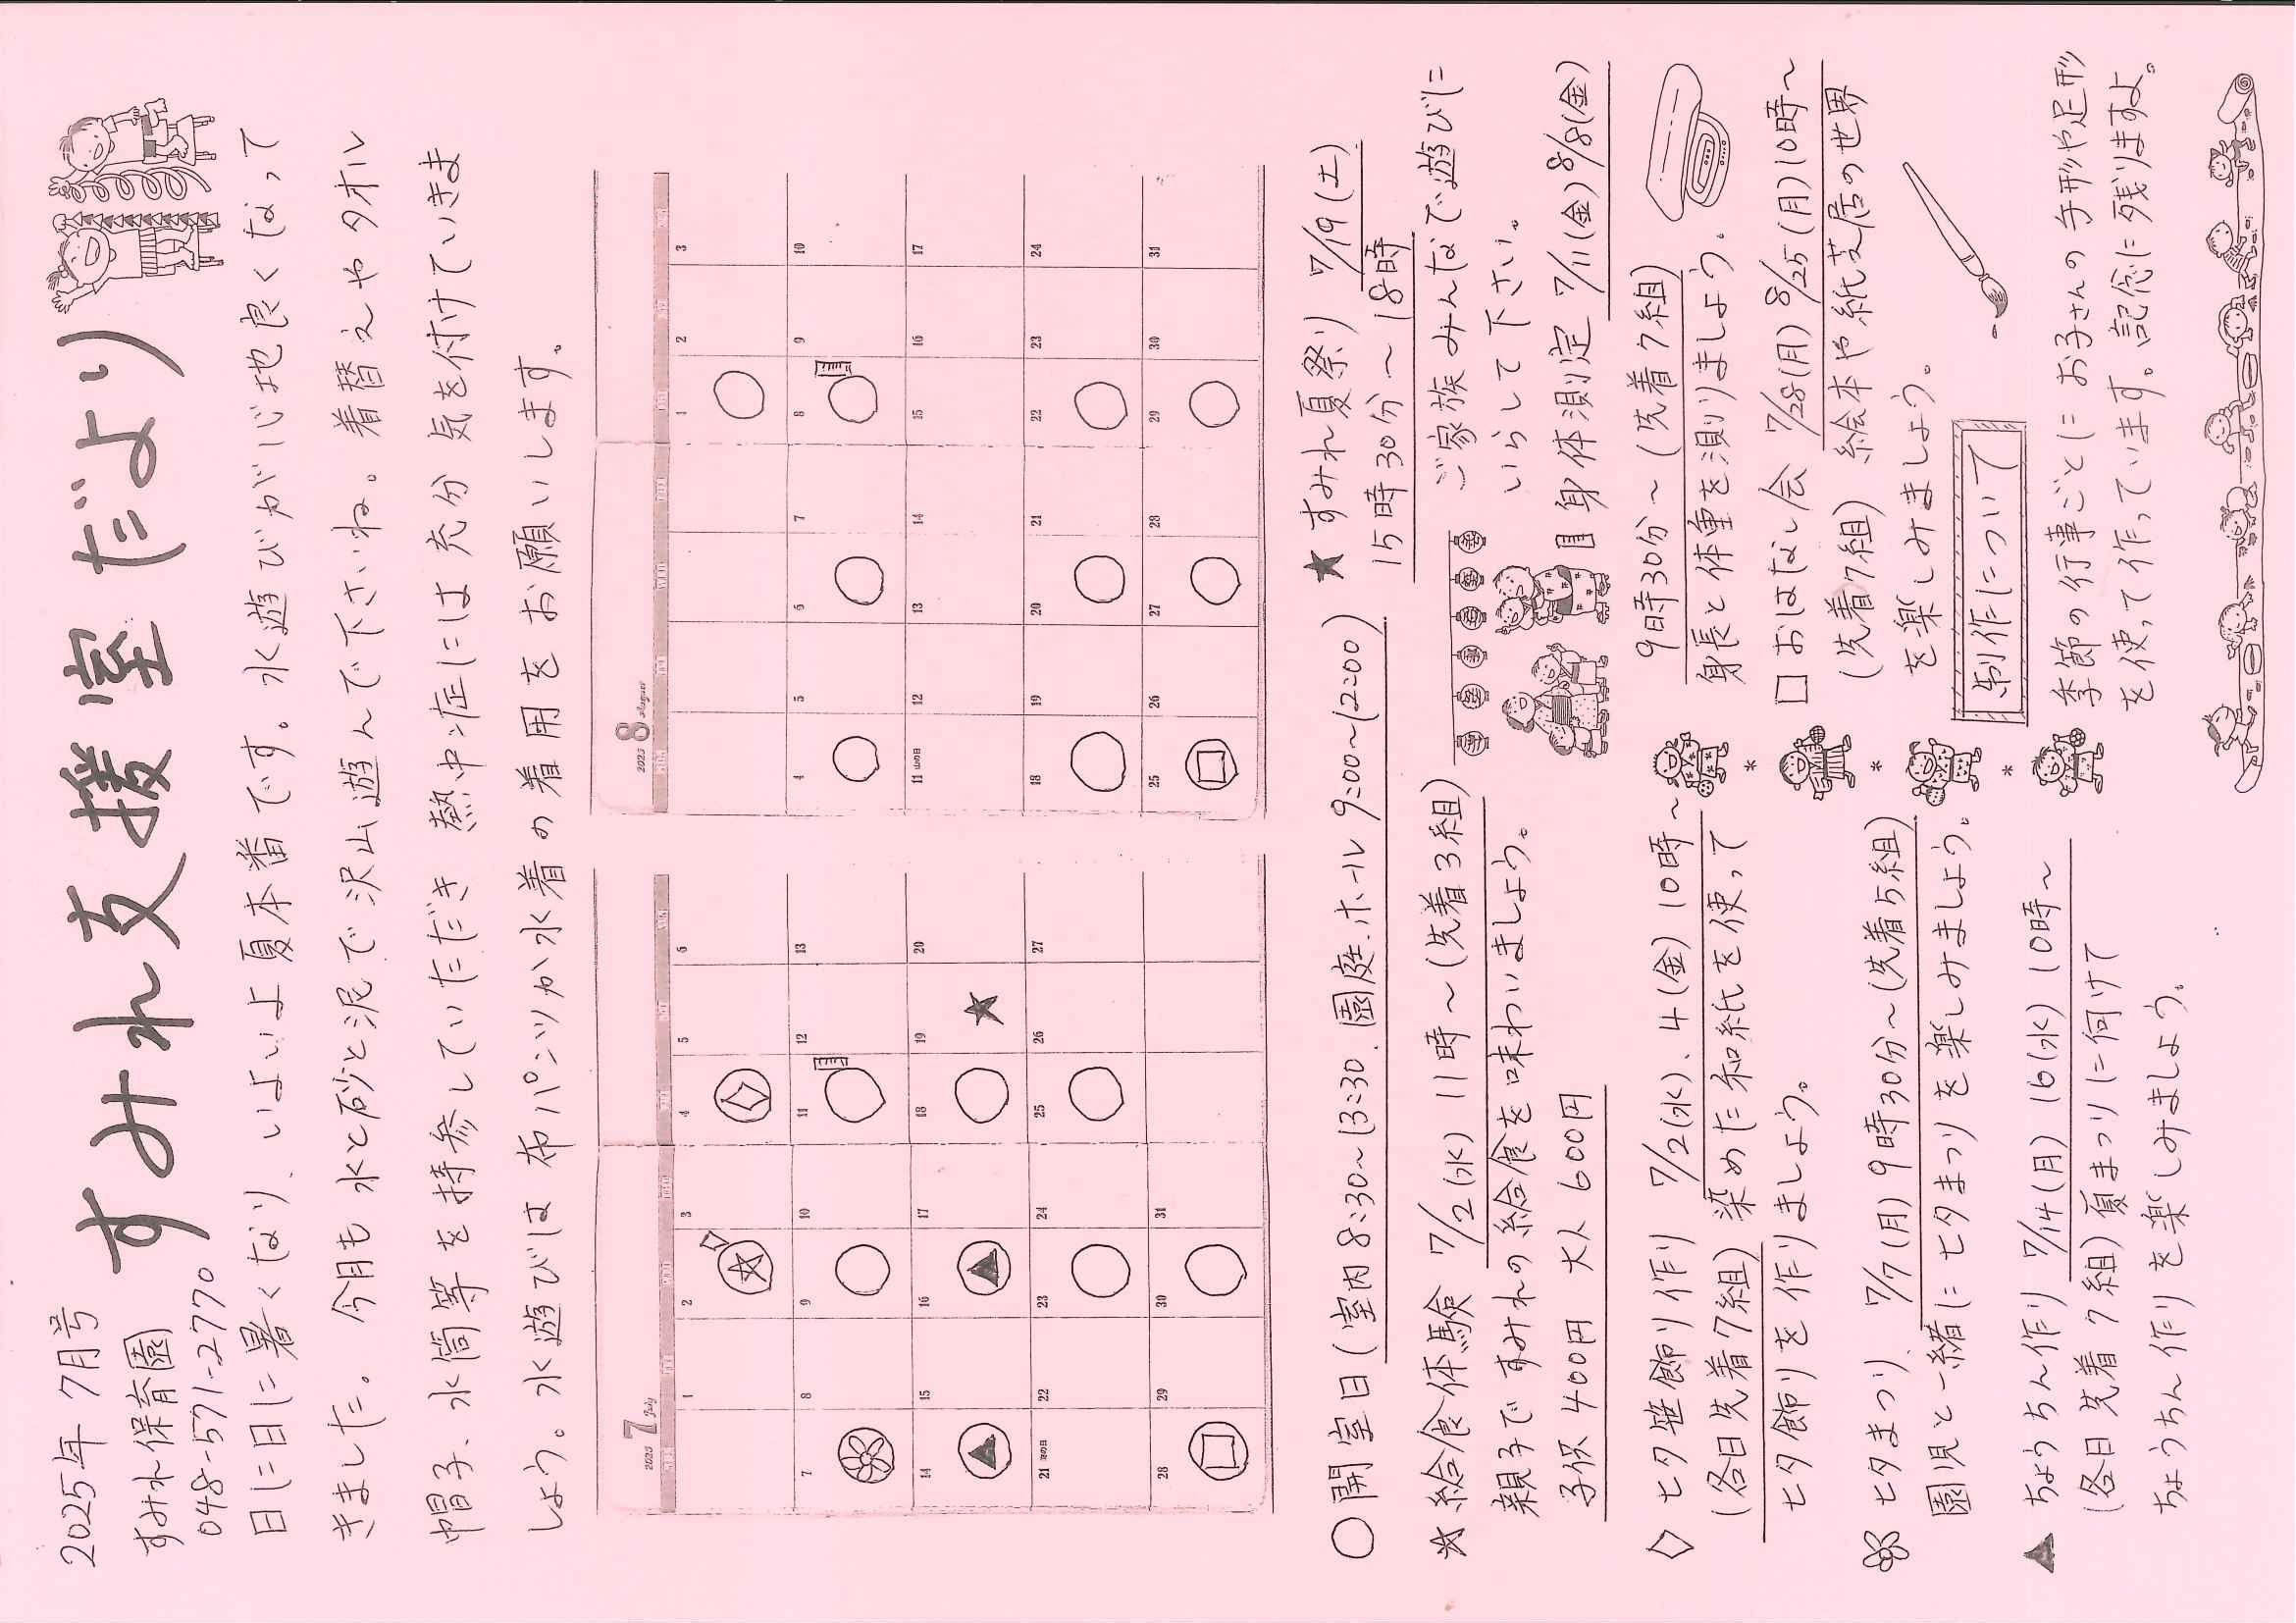 2025年 7月号
すみれ保育園
048-571-2770
すみれ支援室だより
日に日に暑くなり、いよいよ夏本番です。水遊びが心地良くなって
きました。今月も水と砂と泥で沢山遊んで下さいね。着替えやタオル
帽子、水筒等を持参していただき 熱中症には充分気を付けていきま
しょう。水遊びは布パンツか水着の着用をお願いします。
2025 7 July
1 2 3 4 5 6
7 8 9 10 11 12 13
14 15 16 17 18 19 20
21 海の日 22 23 24 25 26 27
28 29 30 31
2025 8 August
1 2 3
4 5 6 7 8 9 10
11 山の日 12 13 14 15 16 17
18 19 20 21 22 23 24
25 26 27 28 29 30 31
○ 開室日（室内8:30〜13:30、園庭・ホール9:00〜12:00）
☆ 給食体験 7/2(水) 11時〜（先着3組）
親子ですみれの給食を味わいましょう。
子供400円 大人600円
◇ 七夕笹飾り作り 7/2(水)、4(金) 10時〜
（各日先着7組）染めた和紙を使って
七夕飾りを作りましょう。
七夕まつり 7/7(月) 9時30分〜（先着5組）
園児と一緒に七夕まつりを楽しみましょう。
▲ ちょうちん作り 7/14(月) 16(水) 10時〜
（各日先着7組）夏まつりに向けて
ちょうちん作りを楽しみましょう。
★ すみれ夏祭り 7/19(土)
15時30分〜18時
ご家族みんなで遊びに
いらして下さい。
祭
身体測定 7/11(金) 8/8(金)
9時30分〜（先着7組）
身長と体重を測りましょう。
□ おはなし会 7/28(月) 8/25(月) 10時〜
（先着7組） 絵本や紙芝居の世界
を楽しみましょう。
制作について
季節の行事ごとにお子さんの手形や足形
を使って作っています。記念に残りますよ。